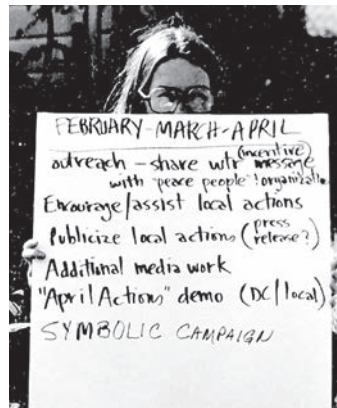 FEBRUARY-MARCH-APRIL
outreach – share wtr (incentive) message
with "peace people" & organizatio
Encourage/assist local actions
Publicize local actions (press release?)
Additional media work
"April Actions" demo (DC/local)
SYMBOLIC CAMPAIGN